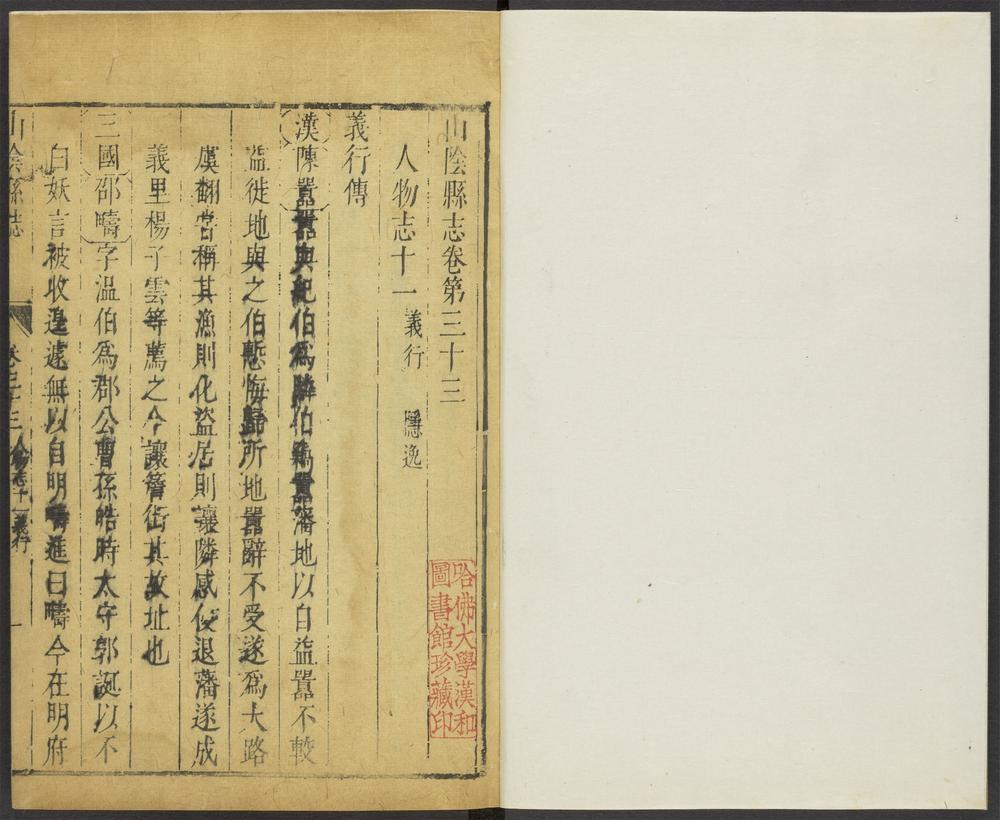 山陰縣志卷第三十三
人物志十一 義行 隱逸
義行傳
漢陳囂囂與紀伯爲隣伯竊囂藩地以自益囂不較
益徙地與之伯慙悔歸所地囂辭不受遂爲大路
虞翻嘗稱其漁則化盜居則讓隣感侵退藩遂成
義里楊子雲等薦之今讓簷街其故址也
三國邵疇字温伯爲郡公曹孫皓時太守郭誕以不
白妖言被收遑遽無以自明疇進曰疇今在明府
山陰縣志 卷三十三 人物志十一 義行 一
哈佛大學漢和
圖書館珍藏印